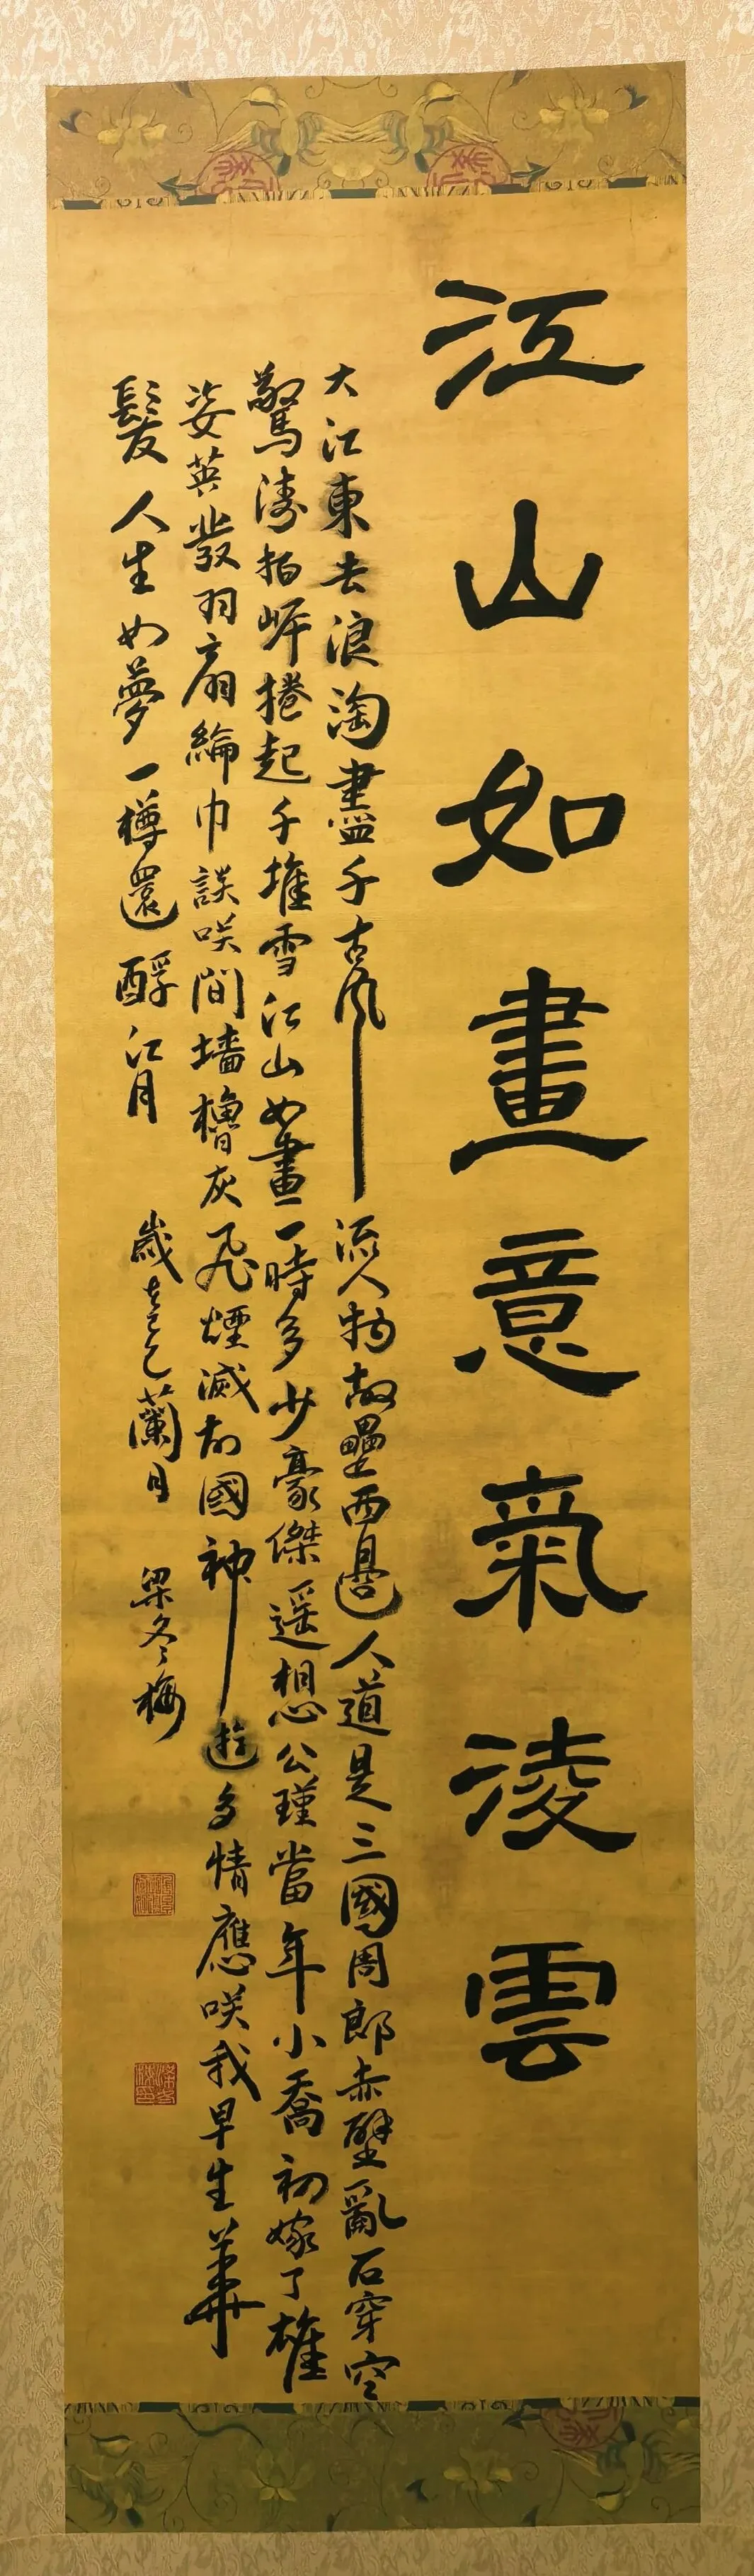 江山如畫意氣淩雲
大江東去浪淘盡千古風流人物故壘西邊人道是三國周郎赤壁亂石穿空
驚濤拍岸捲起千堆雪江山如畫一時多少豪傑遥想公瑾當年小喬初嫁了雄
姿英發羽扇綸巾談咲間墻櫓灰飛煙滅故國神遊多情應咲我早生華
髮人生如夢一樽還酹江月
歲在乙巳蘭月
梁冬梅